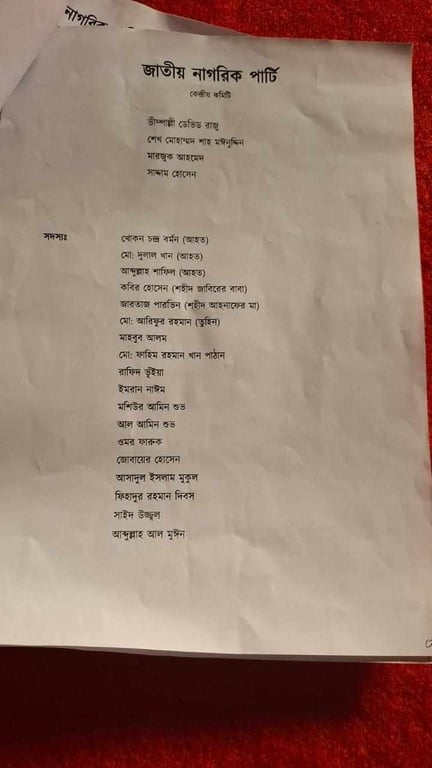 নাগরিক
জাতীয় নাগরিক পার্টি
কেন্দ্রীয় কমিটি
ভীম্পাল্লী ডেভিড রাজু
শেখ মোহাম্মদ শাহ মঈনুদ্দিন
মারজুক আহমেদ
সাদ্দাম হোসেন
সদস্যঃ
খোকন চন্দ্র বর্মন (আহত)
মো: দুলাল খান (আহত)
আব্দুল্লাহ শাফিল (আহত)
কবির হোসেন (শহীদ জাবিরের বাবা)
জারতাজ পারভিন (শহীদ আহনাফের মা)
মো: আরিফুর রহমান (তুহিন)
মাহবুব আলম
মো: ফাহিম রহমান খান পাঠান
রাফিদ ভূঁইয়া
ইমরান নাঈম
মশিউর আমিন শুভ
আল আমিন শুভ
ওমর ফারুক
জোবায়ের হোসেন
আসাদুল ইসলাম মুকুল
ফিহাদুর রহমান দিবস
সাইদ উজ্জ্বল
আব্দুল্লাহ আল মুঈন